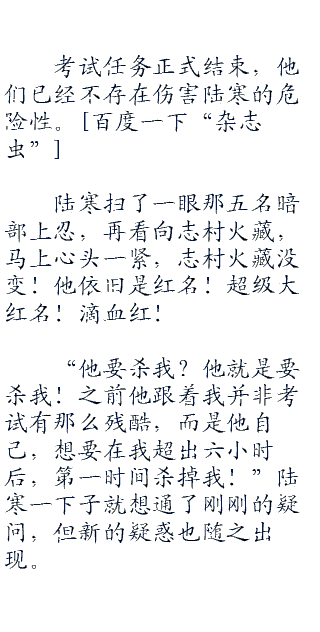 考试任务正式结束，他
们已经不存在伤害陆寒的危
险性。[百度一下“杂志
虫”]
陆寒扫了一眼那五名暗
部上忍，再看向志村火藏，
马上心头一紧，志村火藏没
变！他依旧是红名！超级大
红名！滴血红！
“他要杀我？他就是要
杀我！之前他跟着我并非考
试有那么残酷，而是他自
己，想要在我超出六小时
后，第一时间杀掉我！”陆
寒一下子就想通了刚刚的疑
问，但新的疑惑也随之出
现。